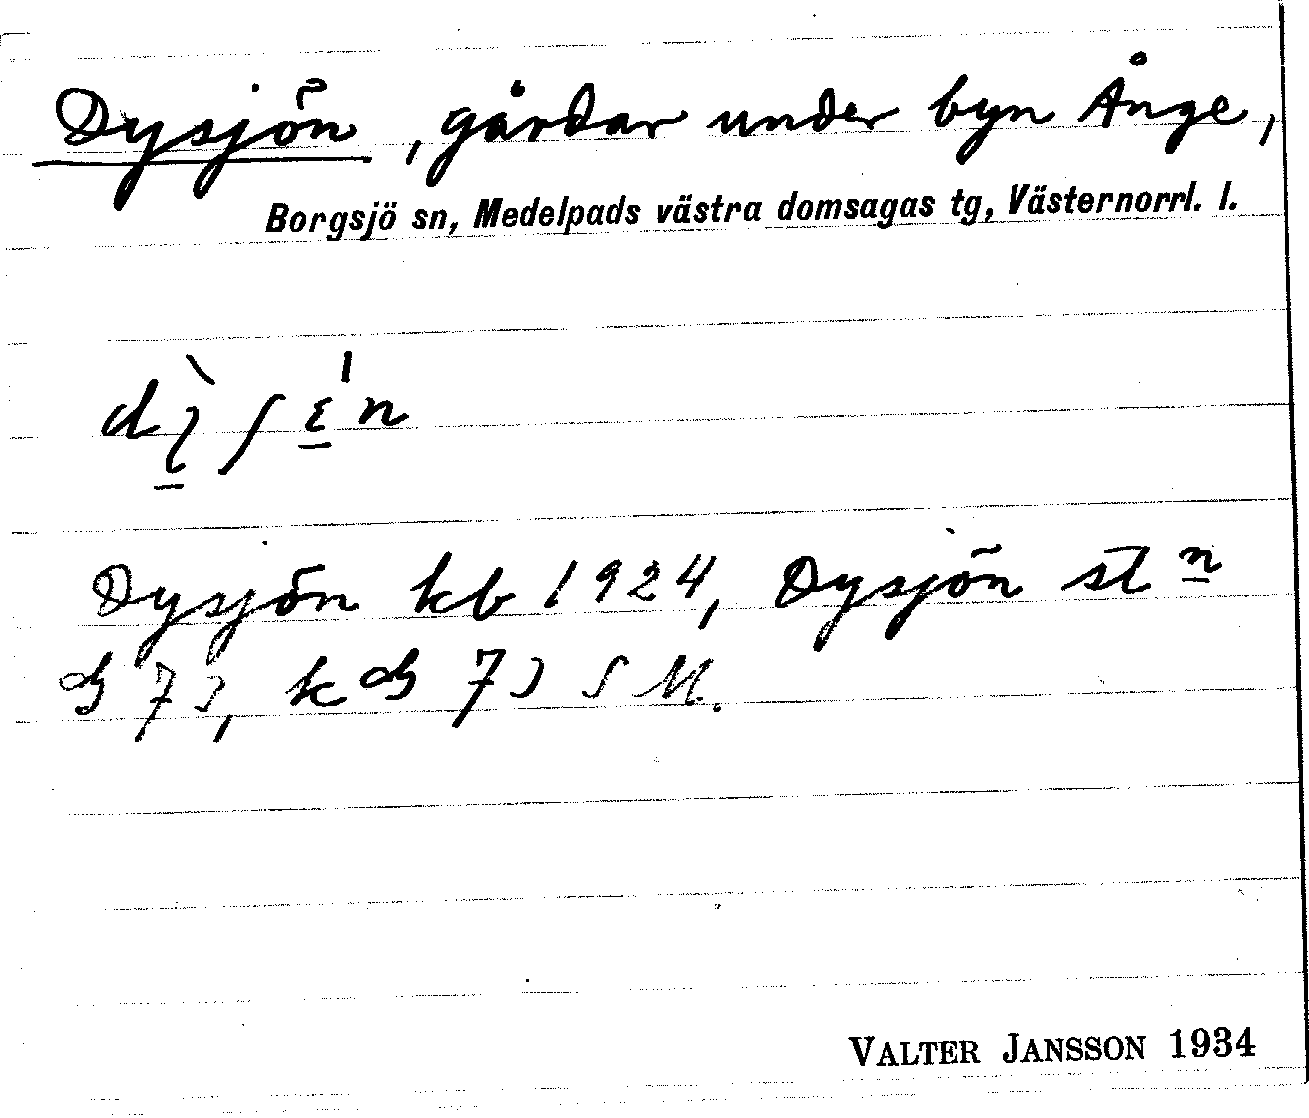 Dysjön, gårdar under byn Ånge,
Borgsjö sn, Medelpads västra domsagas tg, Västernorrl. l.
Dysjön kb 1924, Dysjön stn
73, k 73 S M.
VALTER JANSSON 1934